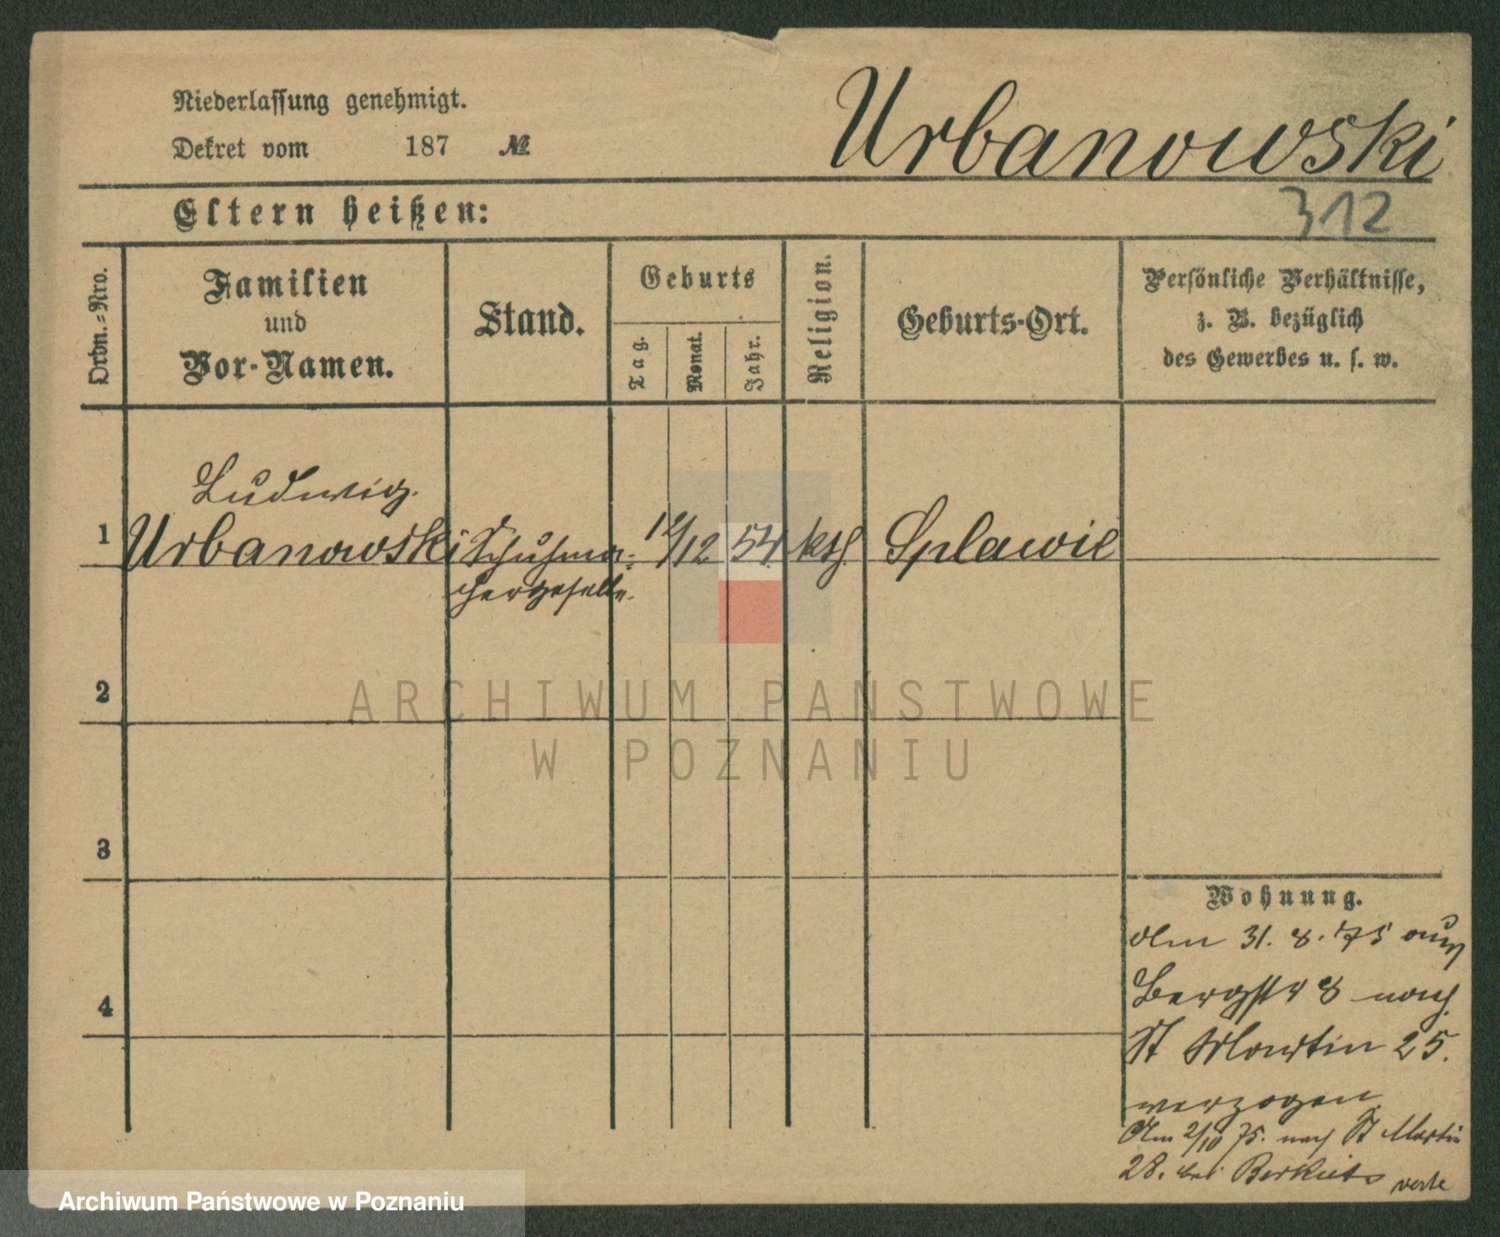 Niederlassung genehmigt.
Dekret vom 187 №
Urbanowski
312
Eltern heißen:
Ordn.-Nro.
Familien
und
Vor-Namen.
Stand.
Geburts
Tag.
Monat.
Jahr.
Religion.
Geburts-Ort.
Persönliche Verhältnisse,
z. B. bezüglich
des Gewerbes u. s. w.
Ludwig
1 Urbanowski Schuhma- 12/12 54 kth Splawie
chergeselle.
2
ARCHIWUM PAŃSTWOWE
W POZNANIU
3
4
Wohnung.
Am 31. 8. 75 aus
Bergstr 8 nach
St Martin 25.
verzogen
Am 2/10 75. nach St Martin
28. bei verte
Archiwum Państwowe w Poznaniu